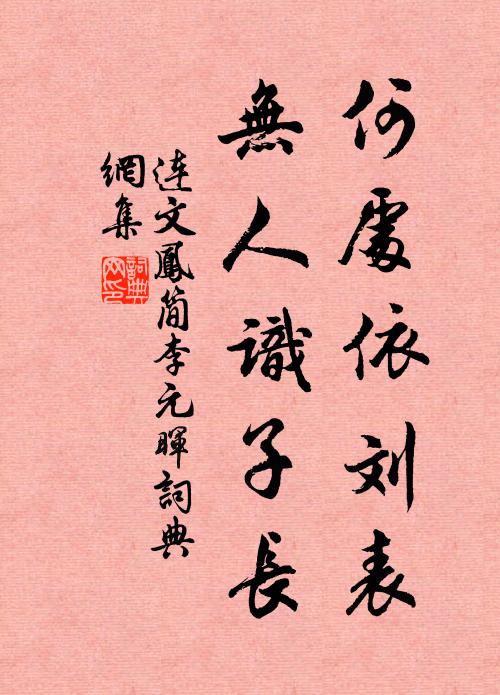 何處依刘表
無人識子長
连文鳳简李元暉詞典
網集
詞典网印